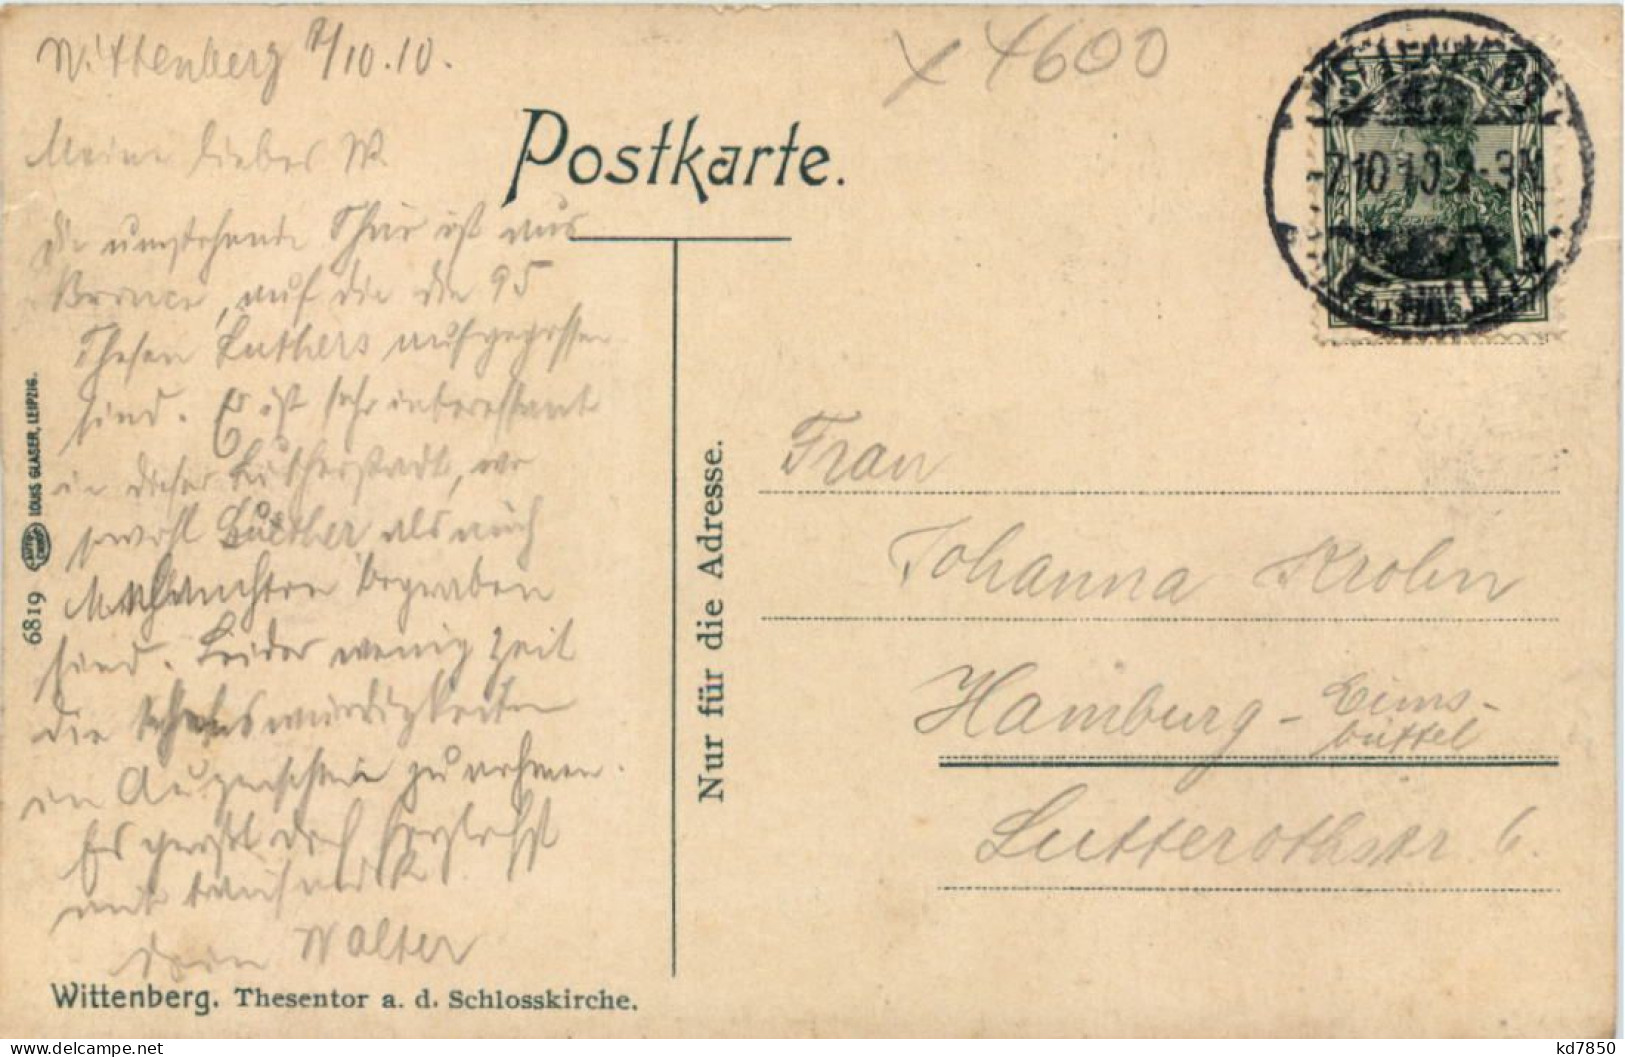 Wittenberg 7/10.10.
x 4600
Postkarte.
7.10.10.2-3N
Mein liebes W.
die umstehende Thür ist aus
Bronce, auf die die 95
Thesen Luthers aufgegossen
sind. Es ist sehr interessant
in dieser Lutherstadt, wo
sowohl Luther als auch
Melanchton begraben
sind. Leider wenig Zeit
die Sehenswürdigkeiten
in Augenschein zu nehmen.
Es grüßt dich herzlichst
mit tausend K
dein Walter
Wittenberg. Thesentor a. d. Schlosskirche.
6819 LOUIS GLASER, LEIPZIG.
Nur für die Adresse.
Frau
Johanna Krohn
Hamburg - Eims-
büttel
Lutterothstr 6.
kd7850